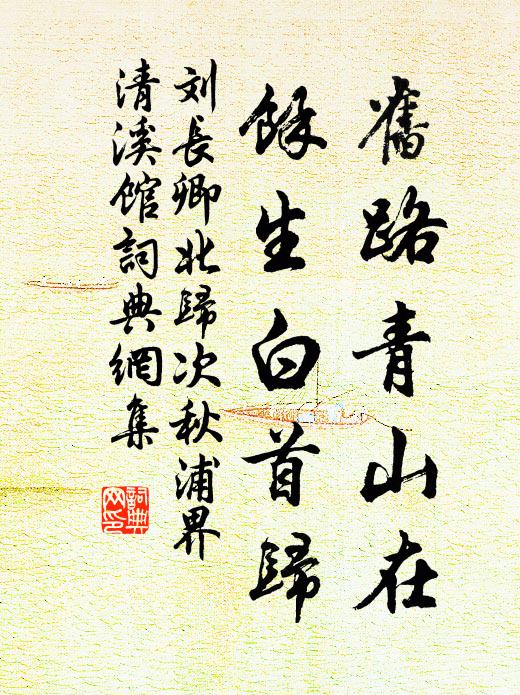 舊路青山在
餘生白首歸
刘長卿北歸次秋浦界
清溪館詞典網集
詞典
网印